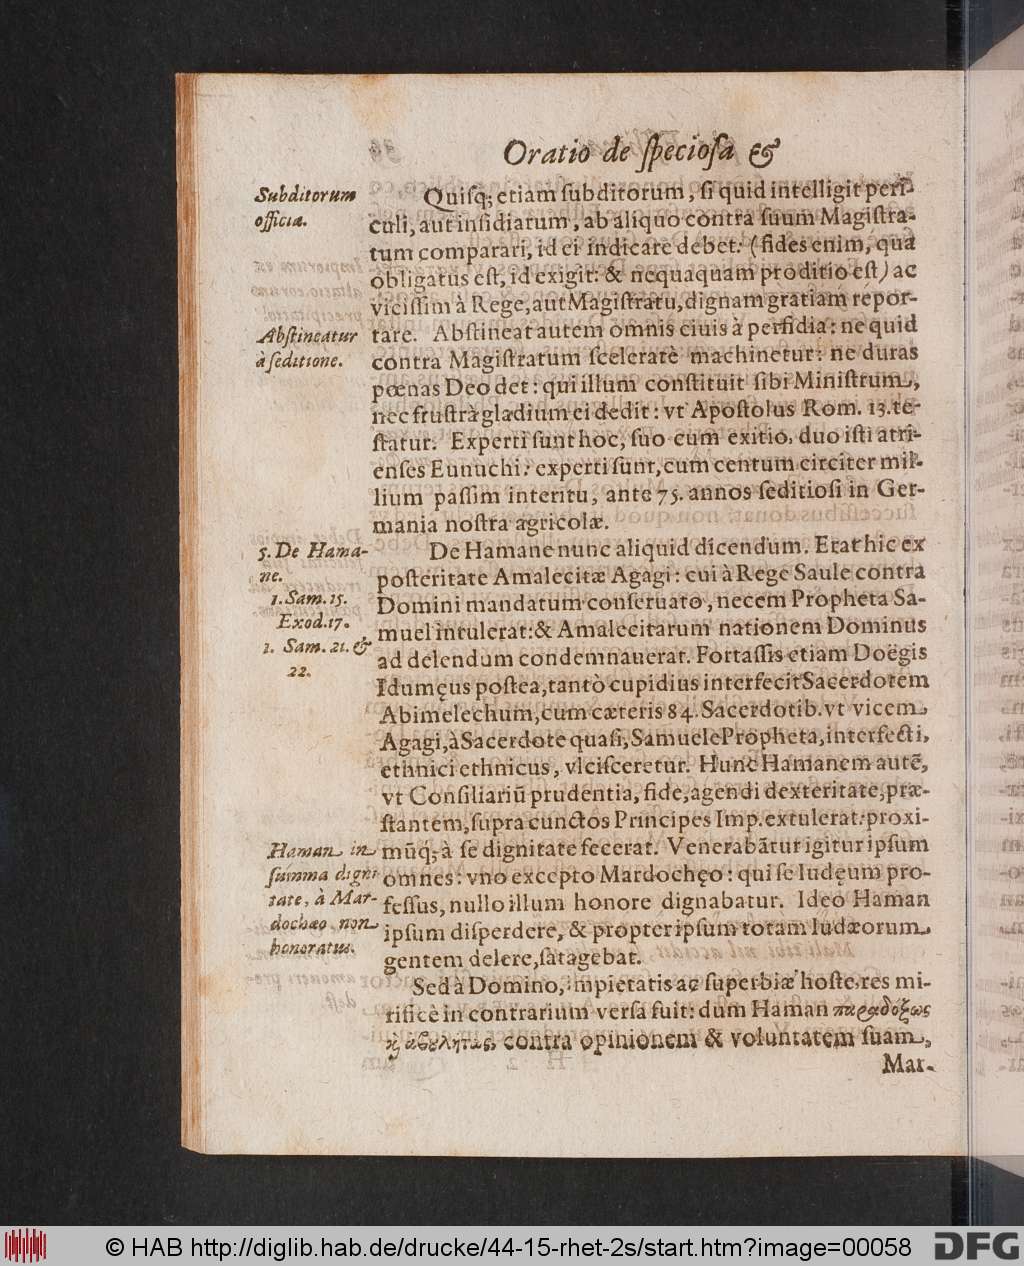 Oratio de ſpecioſa &
Subditorum
officia.
Quiſq; etiam ſubditorum, ſi quid intelligit peri-
culi, aut inſidiarum, ab aliquo contra ſuum Magiſtra-
tum comparari, id ei indicare debet: (fides enim, qua
obligatus eſt, id exigit: & nequaquam proditio eſt) ac
viciſſim à Rege, aut Magiſtratu, dignam gratiam repor-
Abſtineatur
à ſeditione.
tare. Abſtineat autem omnis ciuis à perfidia: ne quid
contra Magiſtratum ſceleratè machinetur: ne duras
pœnas Deo det: qui illum conſtituit ſibi Miniſtrum,
nec fruſtrà gladium ei dedit: vt Apoſtolus Rom. 13. te-
ſtatur. Experti ſunt hoc, ſuo cum exitio, duo iſti atri-
enſes Eunuchi: experti ſunt, cum centum circiter mil-
lium paſſim interitu, ante 75. annos ſeditioſi in Ger-
mania noſtra agricolæ.
5. De Hama-
ne.
1. Sam. 15.
Exod. 17.
1. Sam. 21. &
22.
De Hamane nunc aliquid dicendum. Erat hic ex
poſteritate Amalecitæ Agagi: cui à Rege Saule contra
Domini mandatum conſeruato, necem Propheta Sa-
muel intulerat: & Amalecitarum nationem Dominus
ad delendum condemnauerat. Fortaſſis etiam Doëgis
Idumęus poſtea, tantò cupidius interfecit Sacerdotem
Abimelechum, cum cæteris 84. Sacerdotib. vt vicem
Agagi, à Sacerdote quaſi, Samuele Propheta, interfecti,
ethnici ethnicus, vlciſceretur. Hunc Hamanem autē,
vt Conſiliariū prudentia, fide, agendi dexteritate, præ-
ſtantem, ſupra cunctos Principes Imp. extulerat: proxi-
Haman in
ſumma digni
tate, à Mar-
dochæo non
honoratus.
mūq; à ſe dignitate fecerat. Venerabātur igitur ipſum
omnes: vno excepto Mardochęo: qui ſe Iudęum pro-
feſſus, nullo illum honore dignabatur. Ideo Haman
ipſum diſperdere, & propter ipſum totam Iudæorum
gentem delere, ſatagebat.
Sed à Domino, impietatis ac ſuperbiæ hoſte, res mi-
rificè in contrarium verſa fuit: dum Haman παραδόξως
ϗ ἀβουλήτως, contra opinionem & voluntatem ſuam,
Mar-
© HAB http://diglib.hab.de/drucke/44-15-rhet-2s/start.htm?image=00058
DFG